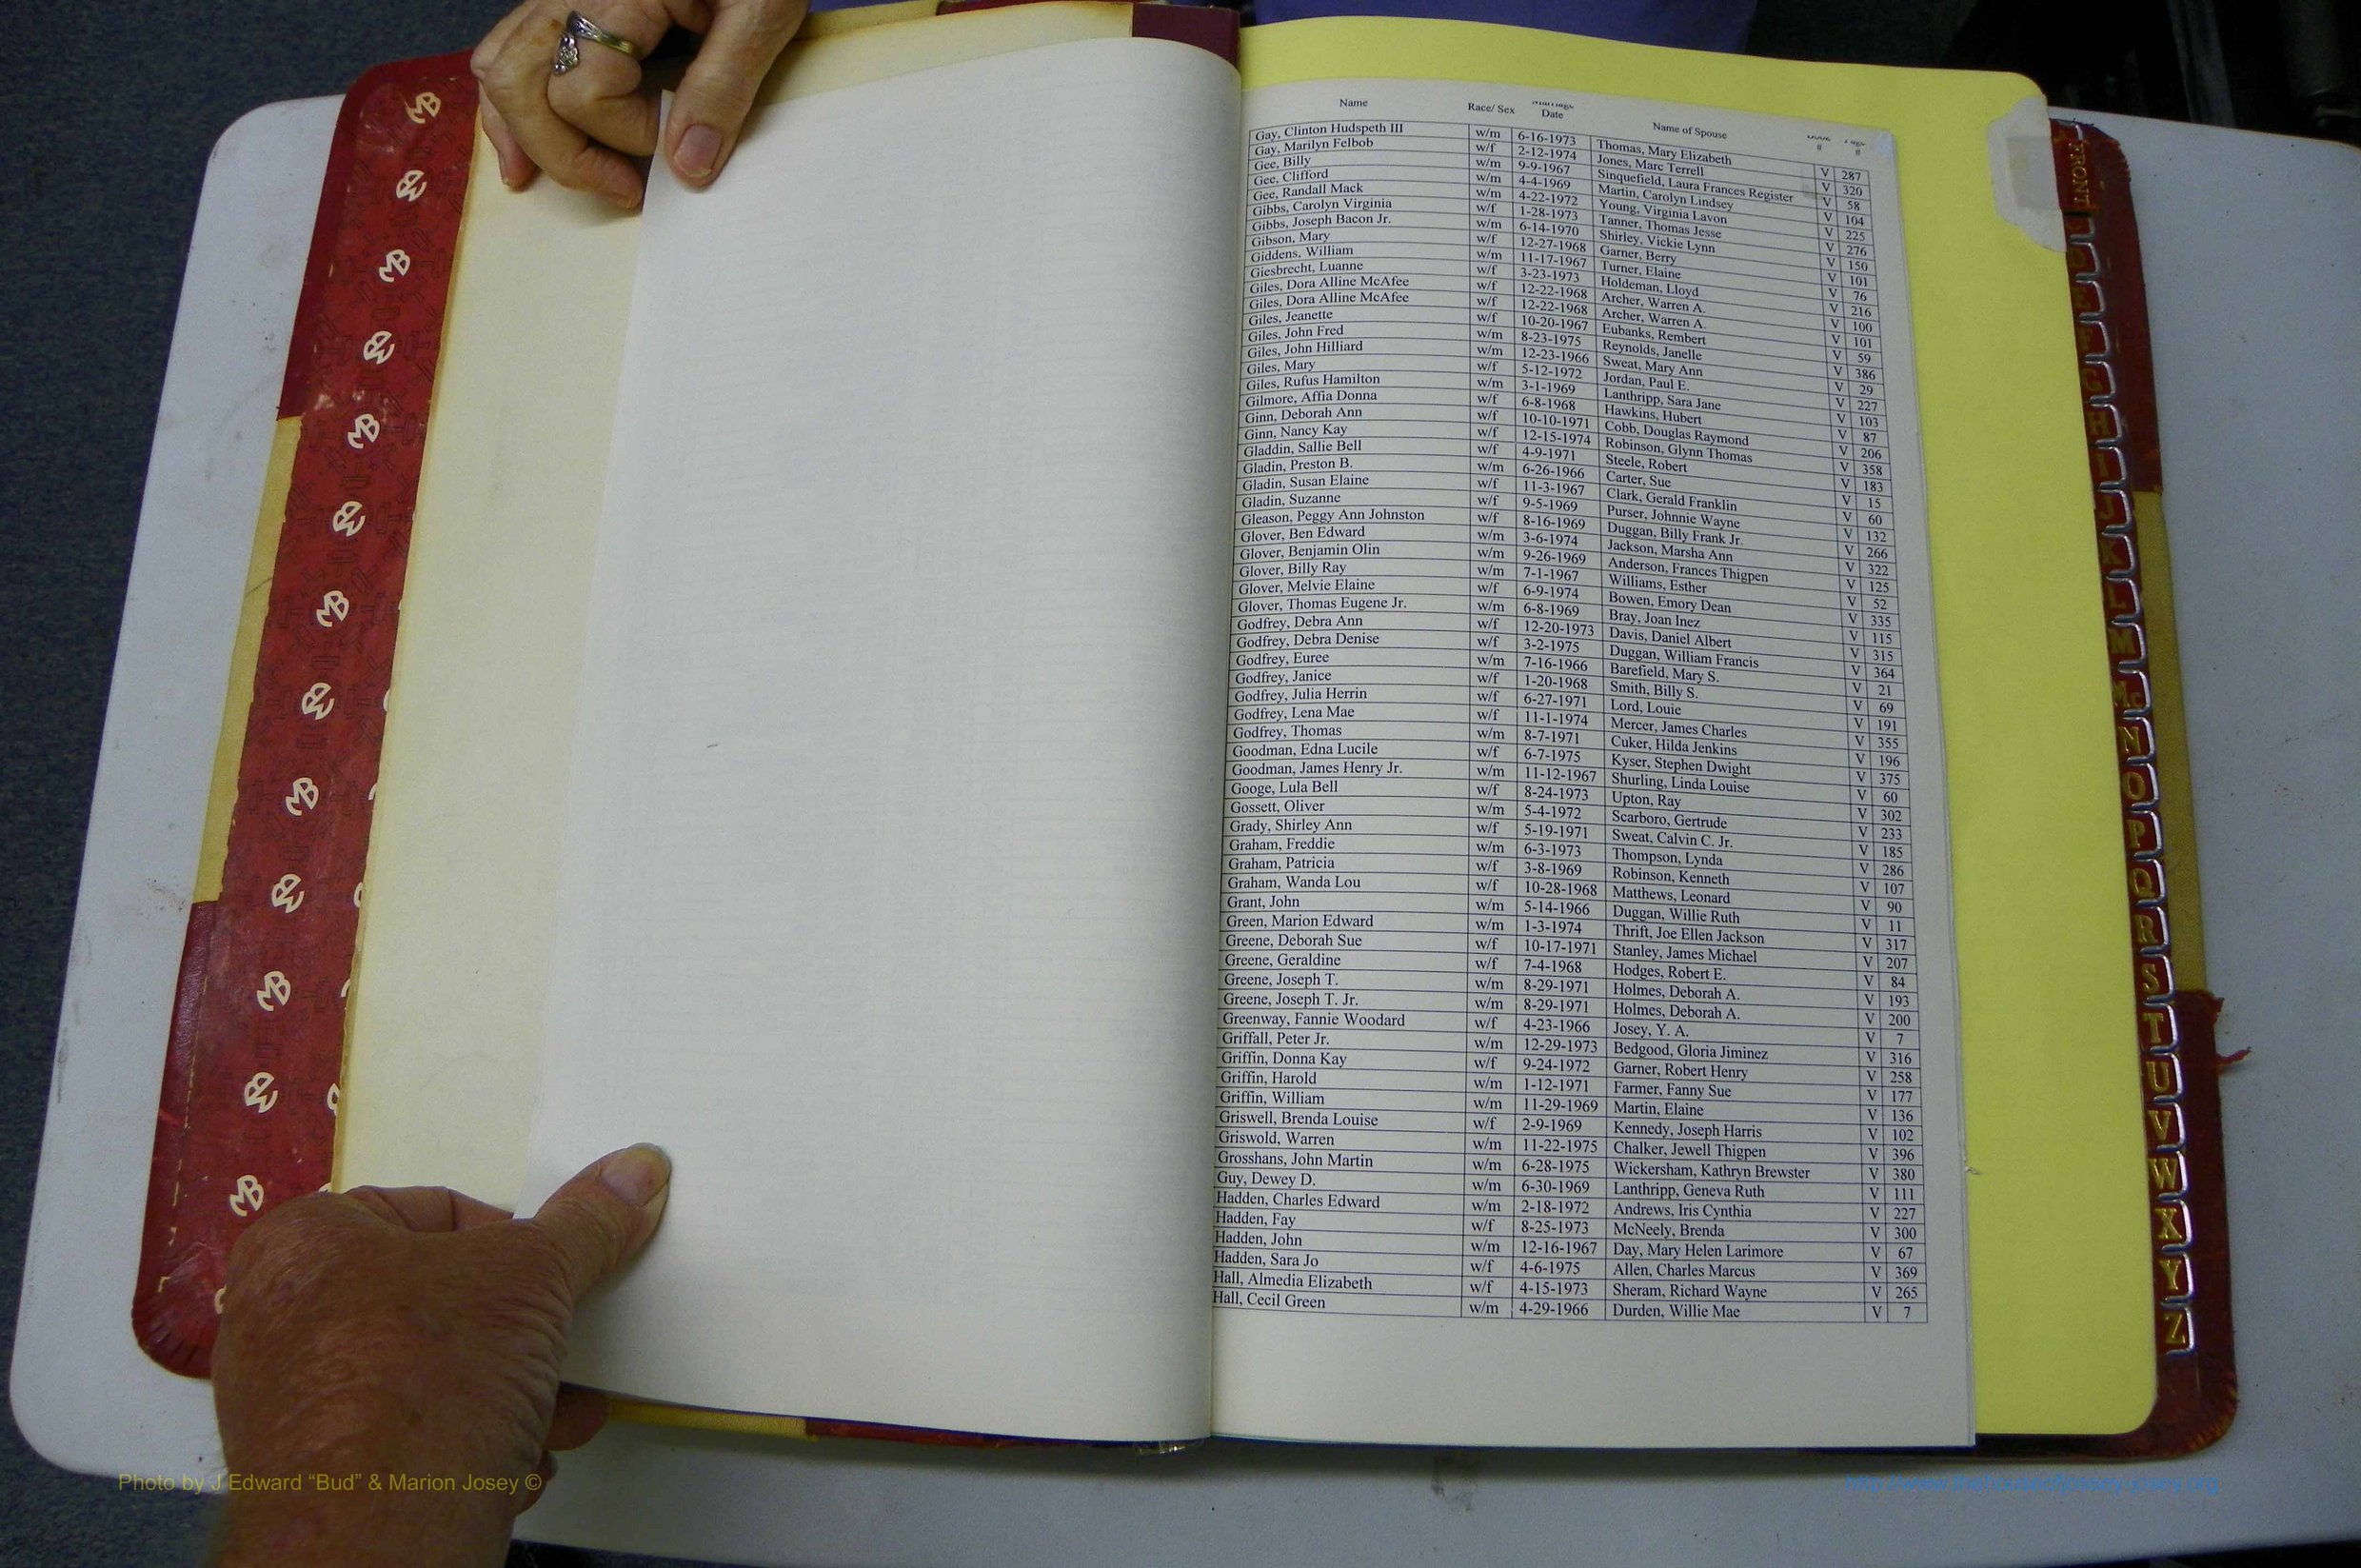 Name Race/ Sex Date Name of Spouse # #
Gay, Clinton Hudspeth III w/m 6-16-1973 Thomas, Mary Elizabeth V 287
Gay, Marilyn Felbob w/f 2-12-1974 Jones, Marc Terrell V 320
Gee, Billy w/m 9-9-1967 Sinquefield, Laura Frances Register V 58
Gee, Clifford w/m 4-4-1969 Martin, Carolyn Lindsey V 104
Gee, Randall Mack w/m 4-22-1972 Young, Virginia Lavon V 225
Gibbs, Carolyn Virginia w/f 1-28-1973 Tanner, Thomas Jesse V 276
Gibbs, Joseph Bacon Jr. w/m 6-14-1970 Shirley, Vickie Lynn V 150
Gibson, Mary w/f 12-27-1968 Garner, Berry V 101
Giddens, William w/m 11-17-1967 Turner, Elaine V 76
Giesbrecht, Luanne w/f 3-23-1973 Holdeman, Lloyd V 216
Giles, Dora Alline McAfee w/f 12-22-1968 Archer, Warren A. V 100
Giles, Dora Alline McAfee w/f 12-22-1968 Archer, Warren A. V 101
Giles, Jeanette w/f 10-20-1967 Eubanks, Rembert V 59
Giles, John Fred w/m 8-23-1975 Reynolds, Janelle V 386
Giles, John Hilliard w/m 12-23-1966 Sweat, Mary Ann V 29
Giles, Mary w/f 5-12-1972 Jordan, Paul E. V 227
Giles, Rufus Hamilton w/m 3-1-1969 Lanthripp, Sara Jane V 103
Gilmore, Affia Donna w/f 6-8-1968 Hawkins, Hubert V 87
Ginn, Deborah Ann w/f 10-10-1971 Cobb, Douglas Raymond V 206
Ginn, Nancy Kay w/f 12-15-1974 Robinson, Glynn Thomas V 358
Gladdin, Sallie Bell w/f 4-9-1971 Steele, Robert V 183
Gladin, Preston B. w/m 6-26-1966 Carter, Sue V 15
Gladin, Susan Elaine w/f 11-3-1967 Clark, Gerald Franklin V 60
Gladin, Suzanne w/f 9-5-1969 Purser, Johnnie Wayne V 132
Gleason, Peggy Ann Johnston w/f 8-16-1969 Duggan, Billy Frank Jr. V 266
Glover, Ben Edward w/m 3-6-1974 Jackson, Marsha Ann V 322
Glover, Benjamin Olin w/m 9-26-1969 Anderson, Frances Thigpen V 125
Glover, Billy Ray w/m 7-1-1967 Williams, Esther V 52
Glover, Melvie Elaine w/f 6-9-1974 Bowen, Emory Dean V 335
Glover, Thomas Eugene Jr. w/m 6-8-1969 Bray, Joan Inez V 115
Godfrey, Debra Ann w/f 12-20-1973 Davis, Daniel Albert V 315
Godfrey, Debra Denise w/f 3-2-1975 Duggan, William Francis V 364
Godfrey, Euree w/m 7-16-1966 Barefield, Mary S. V 21
Godfrey, Janice w/f 1-20-1968 Smith, Billy S. V 69
Godfrey, Julia Herrin w/f 6-27-1971 Lord, Louie V 191
Godfrey, Lena Mae w/f 11-1-1974 Mercer, James Charles V 355
Godfrey, Thomas w/m 8-7-1971 Cuker, Hilda Jenkins V 196
Goodman, Edna Lucile w/f 6-7-1975 Kyser, Stephen Dwight V 375
Goodman, James Henry Jr. w/m 11-12-1967 Shurling, Linda Louise V 60
Googe, Lula Bell w/f 8-24-1973 Upton, Ray V 302
Gossett, Oliver w/m 5-4-1972 Scarboro, Gertrude V 233
Grady, Shirley Ann w/f 5-19-1971 Sweat, Calvin C. Jr. V 185
Graham, Freddie w/m 6-3-1973 Thompson, Lynda V 286
Graham, Patricia w/f 3-8-1969 Robinson, Kenneth V 107
Graham, Wanda Lou w/f 10-28-1968 Matthews, Leonard V 90
Grant, John w/m 5-14-1966 Duggan, Willie Ruth V 11
Green, Marion Edward w/m 1-3-1974 Thrift, Joe Ellen Jackson V 317
Greene, Deborah Sue w/f 10-17-1971 Stanley, James Michael V 207
Greene, Geraldine w/f 7-4-1968 Hodges, Robert E. V 84
Greene, Joseph T. w/m 8-29-1971 Holmes, Deborah A. V 193
Greene, Joseph T. Jr. w/m 8-29-1971 Holmes, Deborah A. V 200
Greenway, Fannie Woodard w/f 4-23-1966 Josey, Y. A. V 7
Griffall, Peter Jr. w/m 12-29-1973 Bedgood, Gloria Jiminez V 316
Griffin, Donna Kay w/f 9-24-1972 Garner, Robert Henry V 258
Griffin, Harold w/m 1-12-1971 Farmer, Fanny Sue V 177
Griffin, William w/m 11-29-1969 Martin, Elaine V 136
Griswell, Brenda Louise w/f 2-9-1969 Kennedy, Joseph Harris V 102
Griswold, Warren w/m 11-22-1975 Chalker, Jewell Thigpen V 396
Grosshans, John Martin w/m 6-28-1975 Wickersham, Kathryn Brewster V 380
Guy, Dewey D. w/m 6-30-1969 Lanthripp, Geneva Ruth V 111
Hadden, Charles Edward w/m 2-18-1972 Andrews, Iris Cynthia V 227
Hadden, Fay w/f 8-25-1973 McNeely, Brenda V 300
Hadden, John w/m 12-16-1967 Day, Mary Helen Larimore V 67
Hadden, Sara Jo w/f 4-6-1975 Allen, Charles Marcus V 369
Hall, Almedia Elizabeth w/f 4-15-1973 Sheram, Richard Wayne V 265
Hall, Cecil Green w/m 4-29-1966 Durden, Willie Mae V 7
FRONT
H
M
Mc
N
O
P
Q
R
S
T
U
V
W
X
Y
Z
MB
Photo by J Edward “Bud” & Marion Josey ©